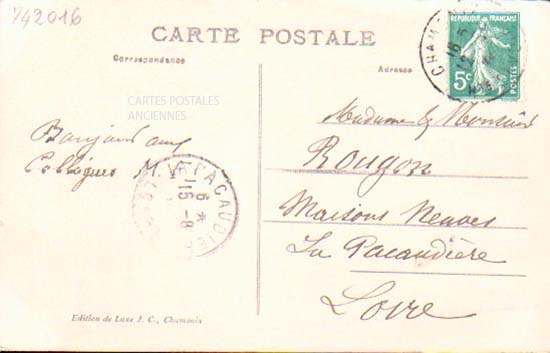 1/42016
CARTE POSTALE
Correspondance
Adresse
RÉPUBLIQUE FRANÇAISE
5c
POSTES
CHAM
CARTES POSTALES
ANCIENNES
Bonjour aux
Collègues M. V.
PACAUDIÈRE
6 *
15 -8
Madame & Monsieur
Rougon
Maisons Neuves
La Pacaudière
Loire
Edition de Luxe J. C., Chamonix